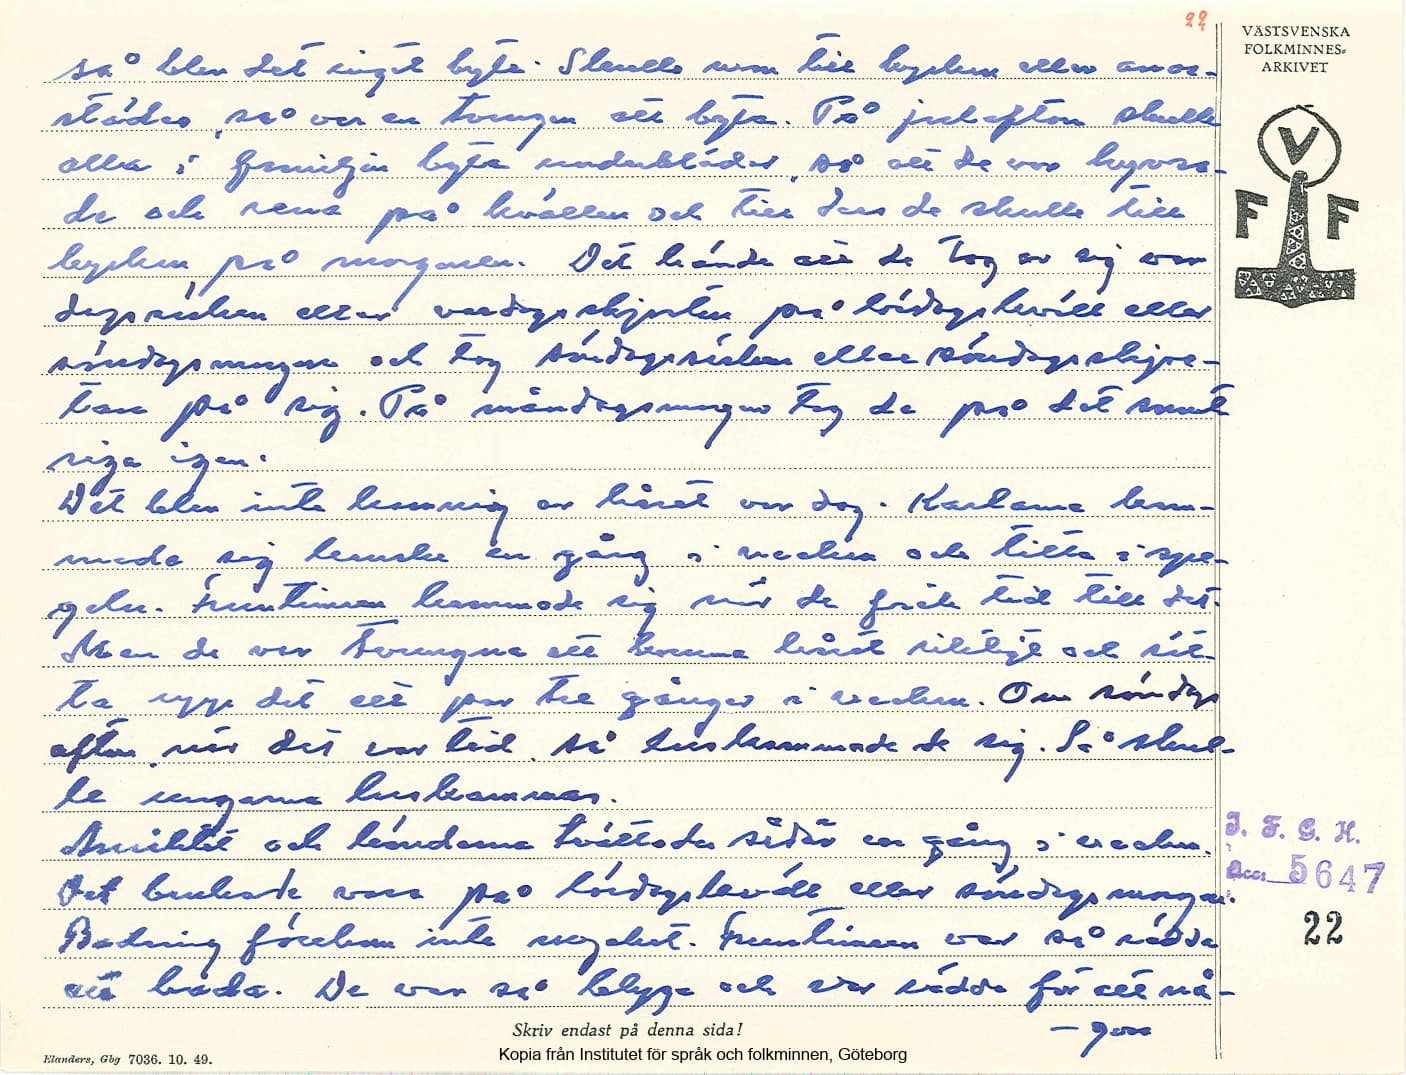 22
VÄSTSVENSKA
FOLKMINNES-
ARKIVET
V
F F
så blev det inget byte. Skulle man till kyrkan eller annor-
städes, så var en tvungen att byta. På julafton skulle
alla i familjen byta underkläder, så att de var
de och rena på kvällen och till dess de skulle till
kyrkan på morgonen. Det hände att de tog av sig var
dagssärken eller vardagsskjortan på lördagskväll eller
söndagsmorgon och tog söndagssärken eller söndagsskjor-
tan på sig. På måndagsmorgon tog de på det smut
siga igen.
Det blev inte kamning av håret var dag. Karlarna kam-
made sig kanske en gång i veckan och titta i spe-
geln. Fruntimren kammade sig när de fick tid till det.
Men de var tvungna att kamma håret riktigt och sät-
ta upp det ett par tre gånger i veckan. Om söndags
afton, när det var tid, så luskammade de sig. Så skul-
le ungarna luskammas.
Ansiktet och händerna tvättades sådär en gång i veckan.
Det brukade vara på lördagskväll eller söndagsmorgon.
Badning förekom inte mycket. Fruntimren var så rädda
att bada. De var så blyga och var rädda för att nå-
- gon
J. F. G. H.
Acc. 5647
22
Skriv endast på denna sida!
Elanders, Gbg 7036. 10. 49.
Kopia från Institutet för språk och folkminnen, Göteborg